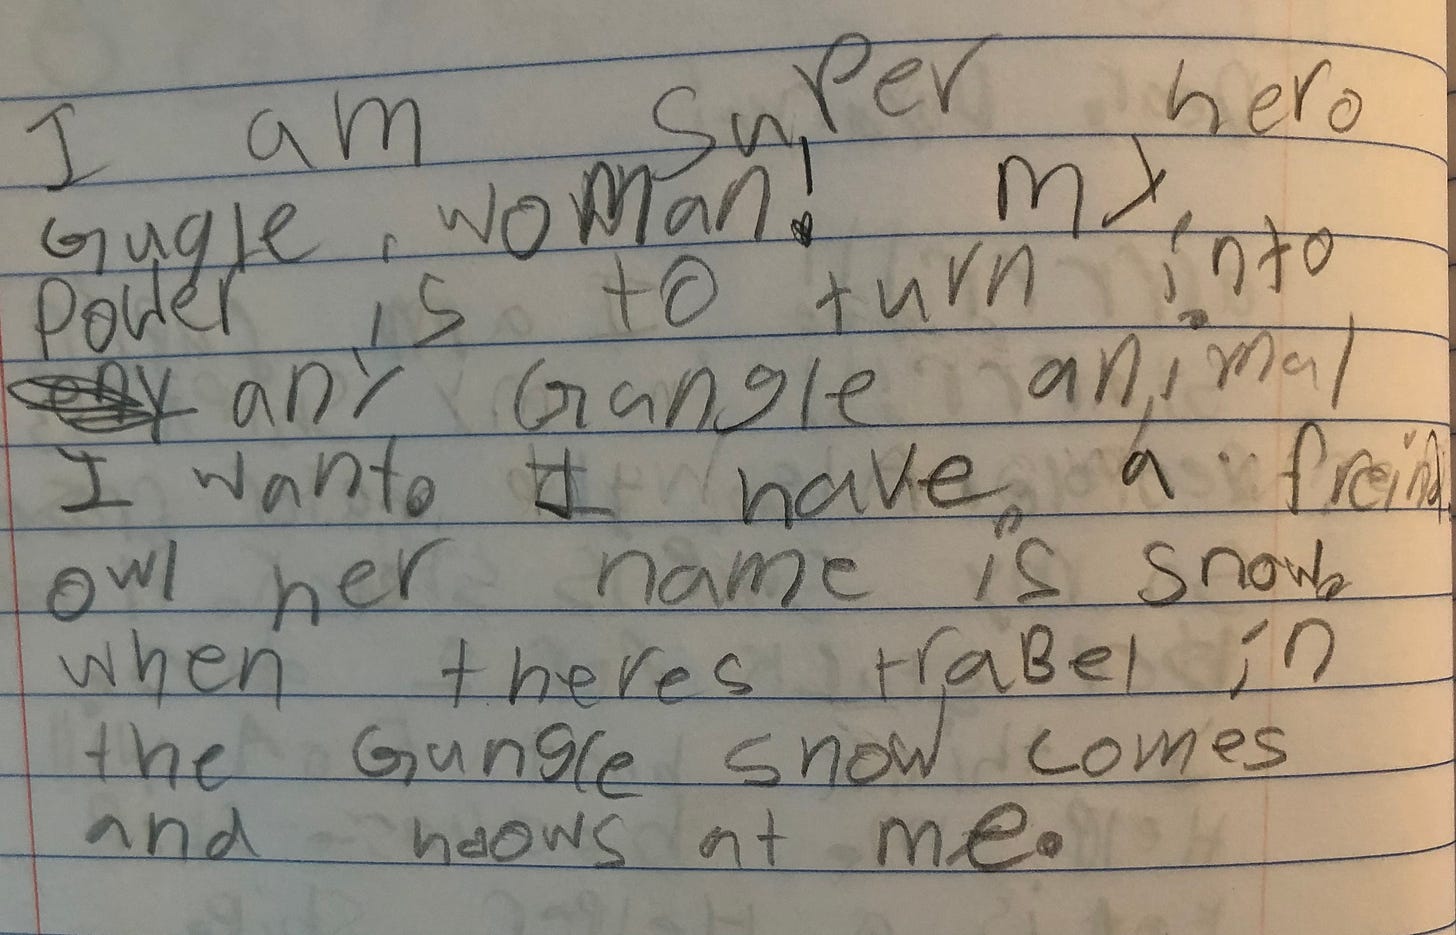 I am super hero
Gugle woman! my
power is to turn into
any Gangle animal
I wanto I have a freind
owl her name is snow
when theres traBel in
the Gungle snow comes
and hoows at me.